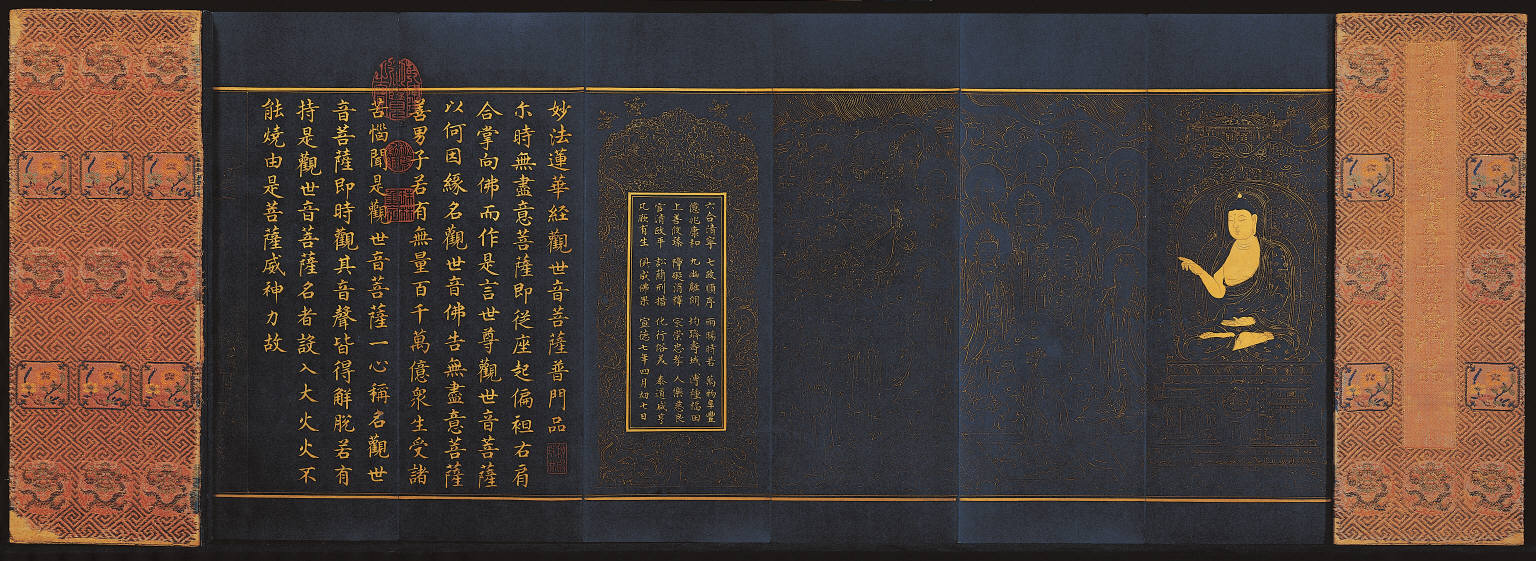 六合清寧 七政順序 雨暘時若 萬物阜豐
億兆康和 九幽融朗 均躋壽域 溥種福田
上善攸臻 障礙消釋 家崇忠孝 人樂慈良
官清政平 訟簡刑措 化行俗美 泰道咸亨
凡厥有生 俱成佛果 宣德七年四月初七日
妙法蓮華經觀世音菩薩普門品
尒時無盡意菩薩即從座起偏袒右肩
合掌向佛而作是言世尊觀世音菩薩
以何因緣名觀世音佛告無盡意菩薩
善男子若有無量百千萬億衆生受諸
苦惱聞是觀世音菩薩一心稱名觀世
音菩薩即時觀其音聲皆得解脫若有
持是觀世音菩薩名者設入大火火不
能燒由是菩薩威神力故